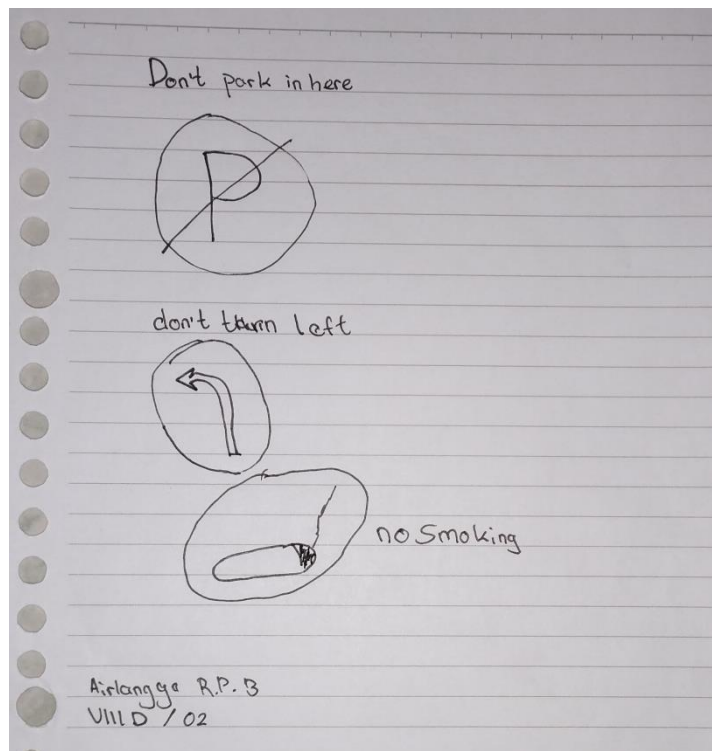 Don't park in here
P
don't turn left
no Smoking
Airlangga R.P. B
VIII D / 02